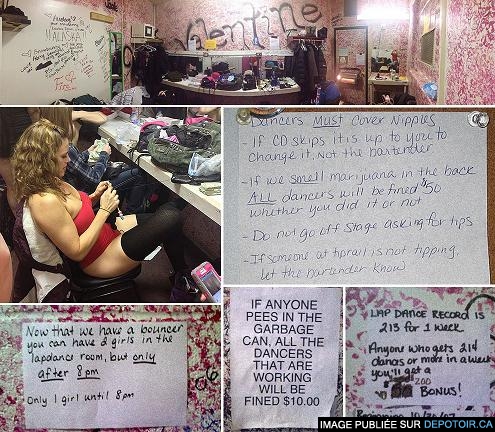 Valentine
Dancers Must Cover Nipples
- If CD skips it is up to you to
change it, Not the bartender
- If we smell marijuana in the back
ALL dancers will be fined $50
whether you did it or not
- Do not go off stage asking for tips
- If someone at tiprail is not tipping,
let the bartender know
Now that we have a bouncer
you can have 2 girls in the
lapdance room, but only
after 8 pm
Only 1 girl until 8pm
IF ANYONE
PEES IN THE
GARBAGE
CAN, ALL THE
DANCERS
THAT ARE
WORKING
WILL BE
FINED $10.00
LAP DANCE RECORD IS
213 for 1 week
Anyone who gets 214
dances or more in a week
you'll get a
200
BONUS!
IMAGE PUBLIÉE SUR DEPOTOIR.CA